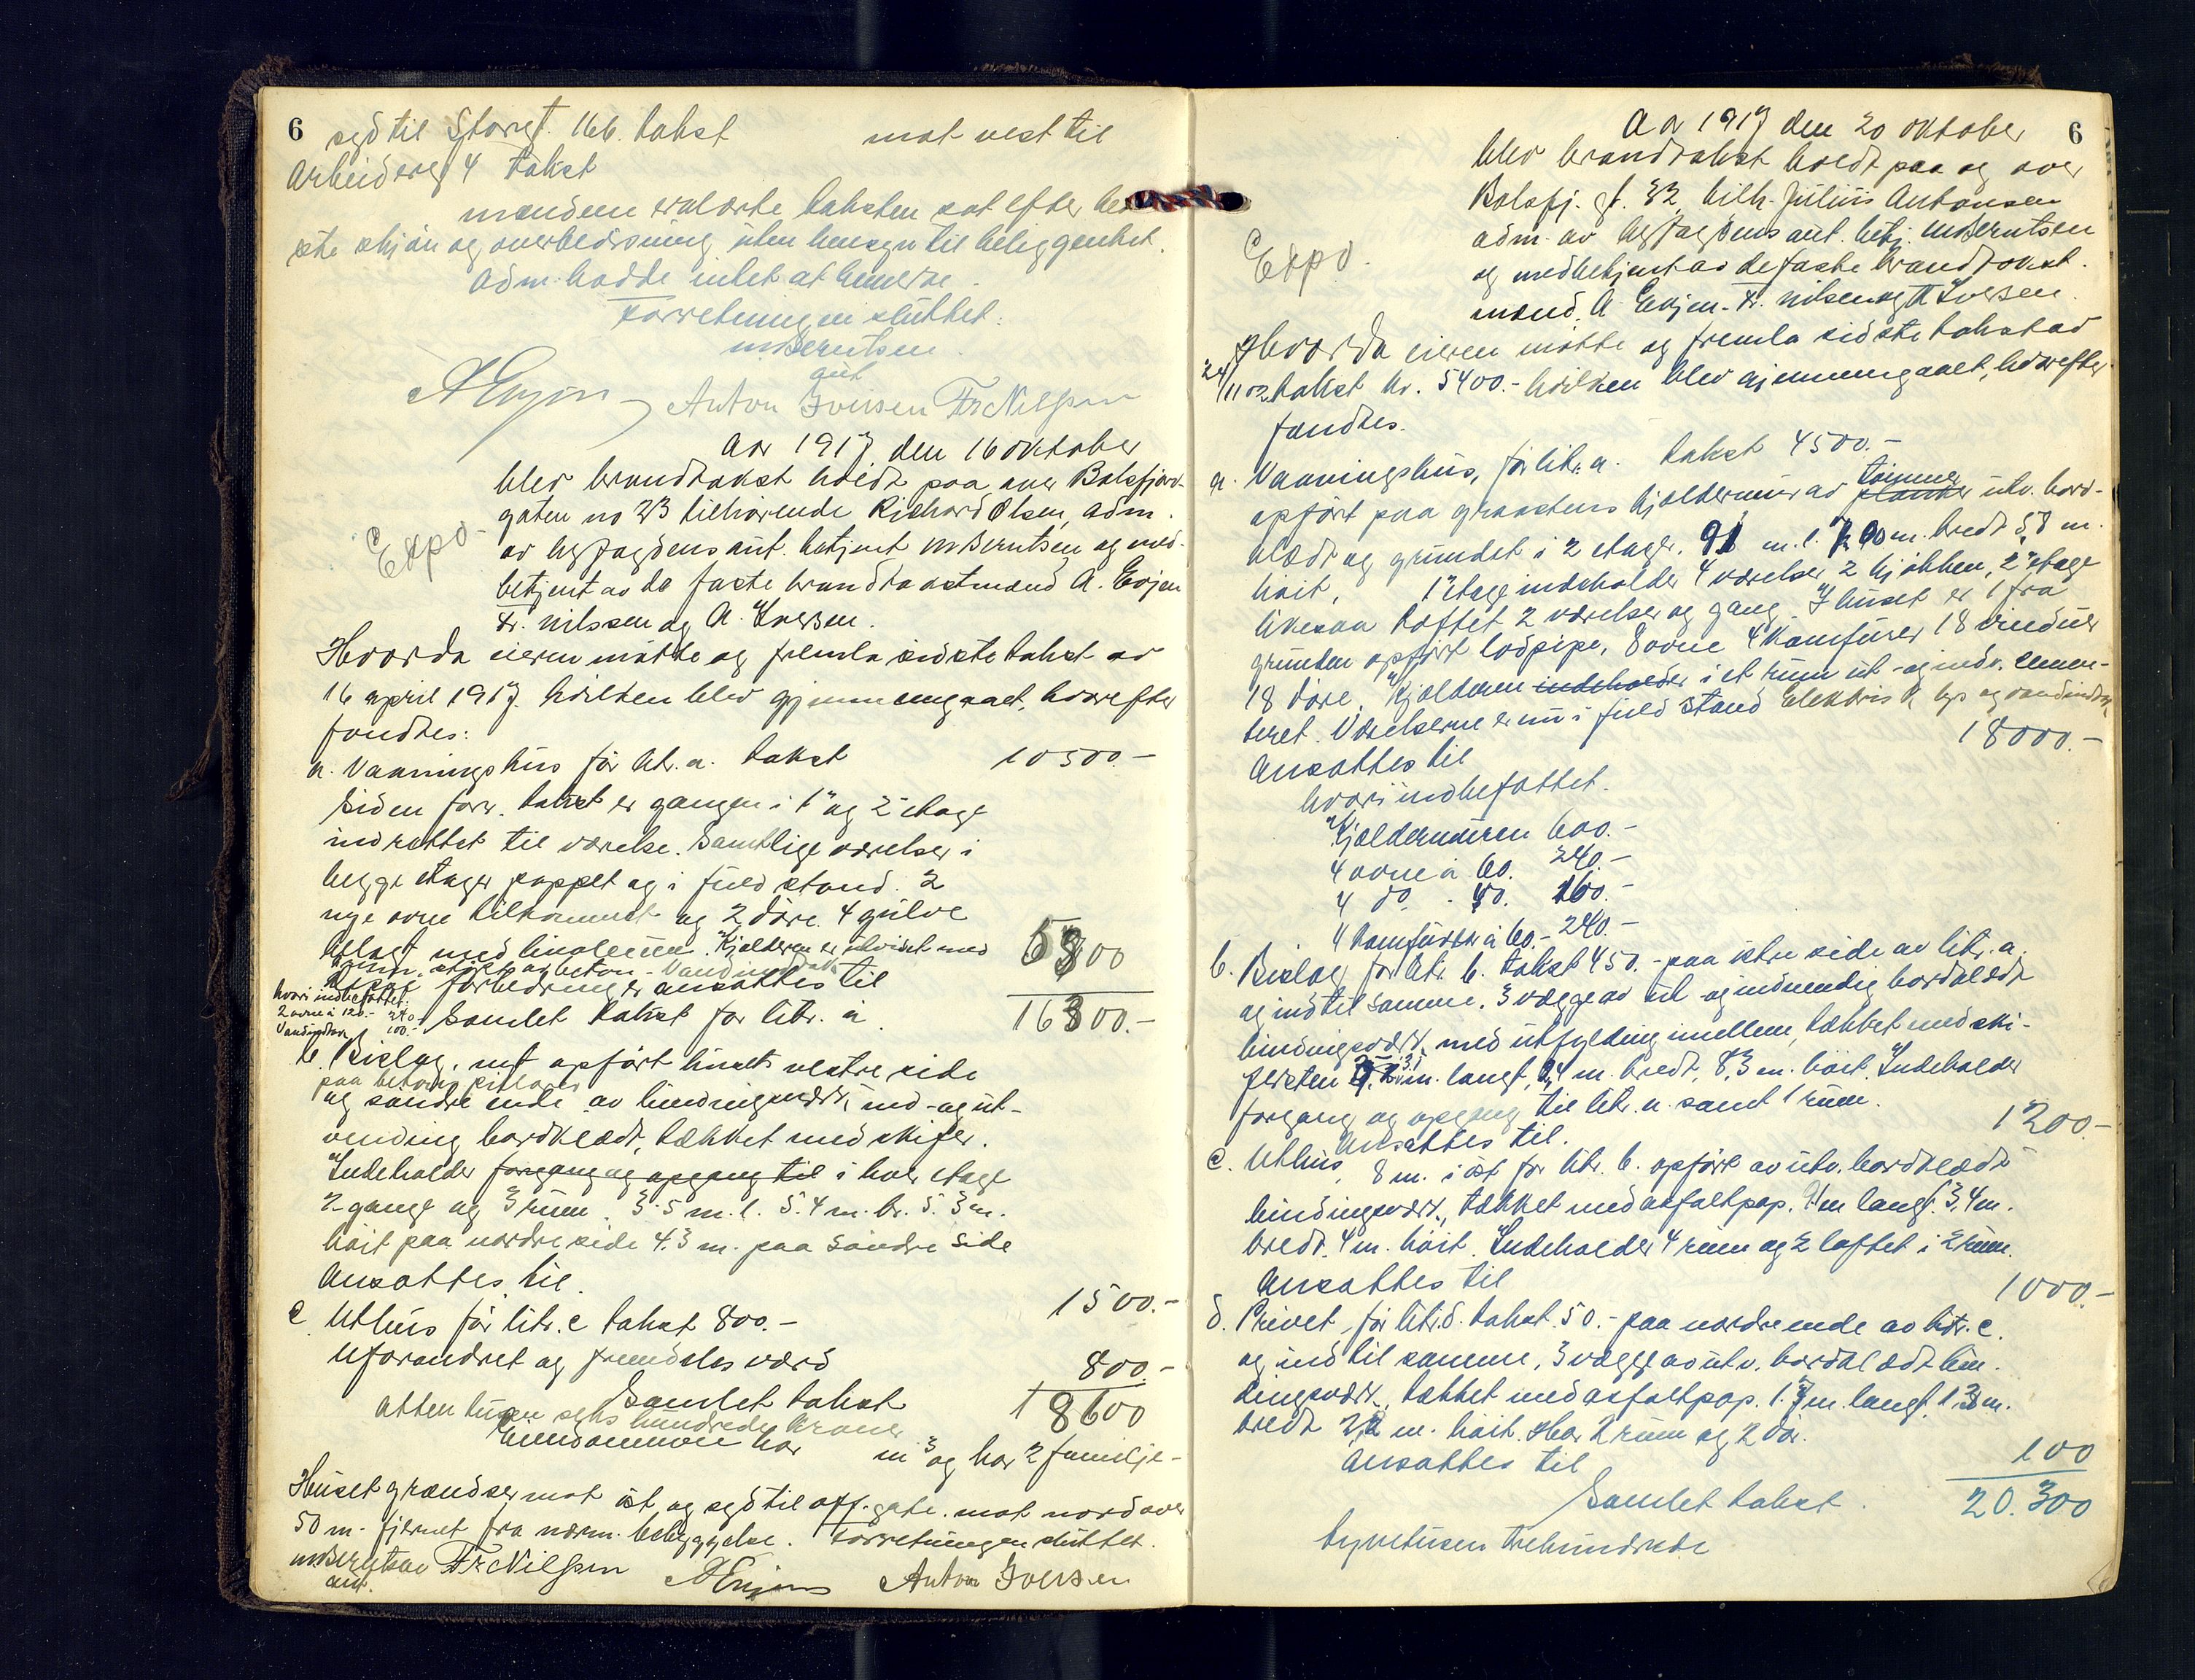 6 syd til Storgt. 16b. takst mot vest til
Arbeiderg 4 takst
mændene erklærte taksten sat efter bed-
ste skjøn og overbevisning uten hensyn til beliggenhet.
Adm. hadde intet at bemerke.
Forretningen sluttet.
M Berntsen
aut
A Evjen Anton Iversen Fr Nilssen
Aar 1917 den 16 oktober
blev brandtakst holdt paa over Balsfjord-
gaten no 23 tilhørende Richard Olsen, adm.
Expd.
av byfogdens aut. betjent M Berntsen og med-
betjent av de faste brandtakstmænd A. Evjen
Fr. Nilssen og A. Iversen.
Hvorda eieren møtte og fremla sidste takst av
16 april 1917. hvilken blev gjennemgaaet, hvorefter
fandtes:
a. Vaaningshus før litr. a. takst 10500.-
Siden forr. takst er gangen i 1ste og 2den etage
indrettet til værelse. Samtlige værelser i
begge etager pappet og i fuld stand. 2
nye ovne tilkommet og 2 døre. 4 gulve
belagt med linoleum. Kjælderen er utvidet med
rum, støpt av beton. Vandindtak
Disse forbedringer ansættes til 5800
hvori indbefattet:
2 ovne à 120.- 240
Vandindtak 100.-
Samlet takst for litr. a. 16300.-
b. Bislag, nyt opført husets vestre side
paa betong pillarer
og søndre ende av bindingsverk, ind- og ut-
vendig bordklædt, tækket med skifer.
Indeholder forgang og opgang til i hver etage
2 gange og 3 rum. 3.5 m. l. 5.4 m. br. 5.3 m.
høit paa nordre side 4.3 m. paa søndre side
Ansættes til. 1500.-
c. Uthus før litr. c takst 800.-
Uforandret og fremdeles værd 800.-
Samlet takst 18600
atten tusen seks hundrede kroner
Eiendommen har m³ og har 2 familje-
Huset grændser mot øst og syd til off. gate. mot nord over
50 m. fjernet fra nærm. bebyggelse. Forretningen sluttet.
M Berntsen Fr Nilssen A Evjen Anton Iversen
aut.
6
Aar 1917 den 20 oktober
blev brandtakst holdt paa og over
Balsfj. gt. 32, tilh. Julius Antonsen
adm. av byfogdens aut. betj. M Berntsen
Expd.
og medbetjent av de faste brandtakst.
mænd. A. Evjen. Fr. Nilsen og A Iversen.
Hvorda eieren møtte og fremla sidste takst av
24/11 02 takst kr. 5400.- hvilken blev gjennemgaaet, hvorefter
fandtes.
a. Vaaningshus, før litr. a. takst 4500.-
opført paa graastens kjældermur av planker tømmer utv. bord-
klædt og grundet i 2 etager. 9,1 m. l. 7,90 m. bredt 5,8 m.
høit. 1ste etage indeholder 4 værelser 2 kjøkken, 2den etage
likesaa Loftet 2 værelser og gang. I huset er 1 fra
grunden opført lodpipe, 8 ovne 4 komfurer 18 vinduer
18 døre. Kjælderen indeholder i et rum ut- og indv. semen-
teret. Værelserne er nu i fuld stand Elektrisk lys og vandindtak
Ansættes til 18000.-
hvori indbefattet.
Kjældermuren 600.-
4 ovne à 60. 240.-
4 do. - 40. 160.-
4 komfurer à 60.- 240.-
b. Bislag før litr. b. takst 450.- paa østre side av litr. a.
og ind til samme. 3 vægge av ut og indvendig bordklædt
bindingsverk, med utfylding imellem, tækket med ski-
fersten m. langt, 2,4 m. bredt, 8,3 m. høit. Indeholder
forgang og opgang til litr. a. samt 1 rum.
Ansættes til. 1200.-
c. Uthus, 8 m. i øst for litr. b. opført av utv. bordklædt
bindingsverk, tækket med asfaltpap. 9 m langt. 3,4 m.
bredt. 4 m. høit. Indeholder 4 rum og 2 loftet i 2 rum.
Ansættes til 1000.-
d. Privet, før litr. d. takst 50.- paa nordre ende av litr. c.
og ind til samme, 3 vægge av utv. bordklædt bin-
dingsverk, tækket med asfaltpap. 1.7 m. langt, 1.3 m.
bredt 2,2 m. høit. Har 2 rum og 2 dør.
Ansættes til 100
Samlet takst. 20.300
tyvetusen trehundrede